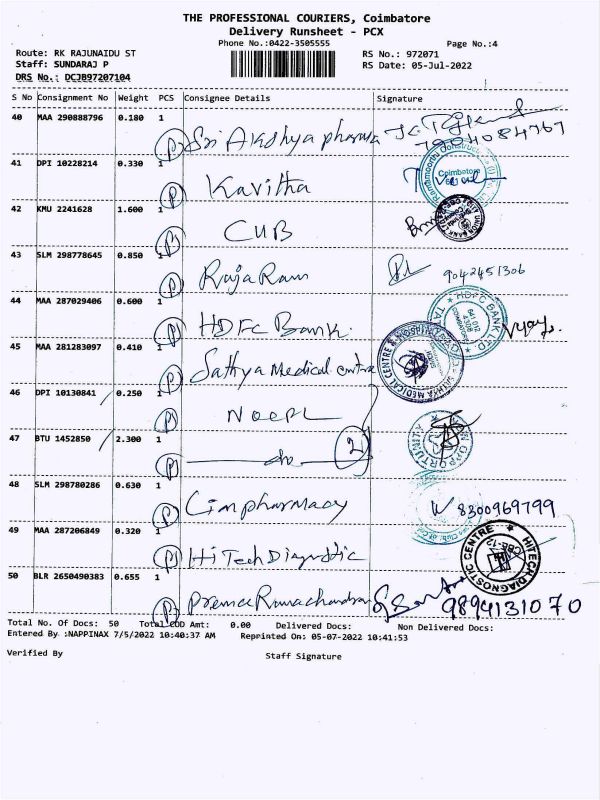 THE PROFESSIONAL COURIERS, Coimbatore
Delivery Runsheet - PCX
Phone No.:0422-3505555
Page No.:4
Route: RK RAJUNAIDU ST
RS No.: 972071
Staff: SUNDARAJ P
RS Date: 05-Jul-2022
DRS No.: DCJB97207104
S No Consignment No Weight PCS Consignee Details Signature
40 MAA 290888796 0.180 1
P Sri Akshya pharma
7904084767
41 DPI 10228214 0.330 1
P Kavitha
Coimbatore
42 KMU 2241628 1.600 1
P CUB
43 SLM 298778645 0.850 1
P Raja Ram 9042451306
44 MAA 287029406 0.600 1
P HDFC Bank.
HDFC BANK LTD
45 MAA 281283097 0.410 1
P Sathya Medical centre
SATHYA MEDICAL CENTRE &
46 DPI 10130841 0.250 1
P NOEPL
47 BTU 1452850 2.300 1
P do 2
48 SLM 298780286 0.630 1
P Cimpharmacy 8300969799
49 MAA 287206849 0.320 1
P Hi Tech Diagnostic
HITECH DIAGNOSTIC CENTRE
CBE-12
50 BLR 2650490383 0.655 1
P Prema Ramachandran
9894131070
Total No. Of Docs: 50 Total COD Amt: 0.00 Delivered Docs: Non Delivered Docs:
Entered By :NAPPINAX 7/5/2022 10:40:37 AM Reprinted On: 05-07-2022 10:41:53
Verified By
Staff Signature